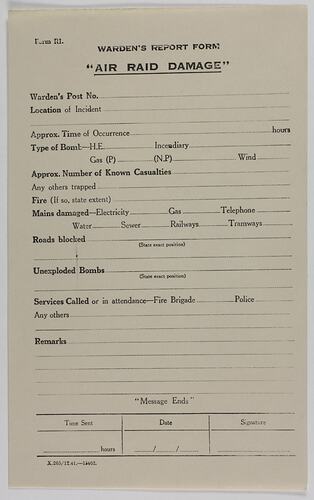 Form R1.
WARDEN'S REPORT FORM
"AIR RAID DAMAGE"
Warden's Post No.
Location of Incident
Approx. Time of Occurrence hours
Type of Bomb—H.E. Incendiary
Gas (P) (N.P) Wind
Approx. Number of Known Casualties
Any others trapped
Fire (If so, state extent)
Mains damaged—Electricity Gas Telephone
Water Sewer Railways Tramways
Roads blocked
(State exact position)
Unexploded Bombs
(State exact position)
Services Called or in attendance—Fire Brigade Police
Any others
Remarks
"Message Ends"
Time Sent Date Signature
hours / /